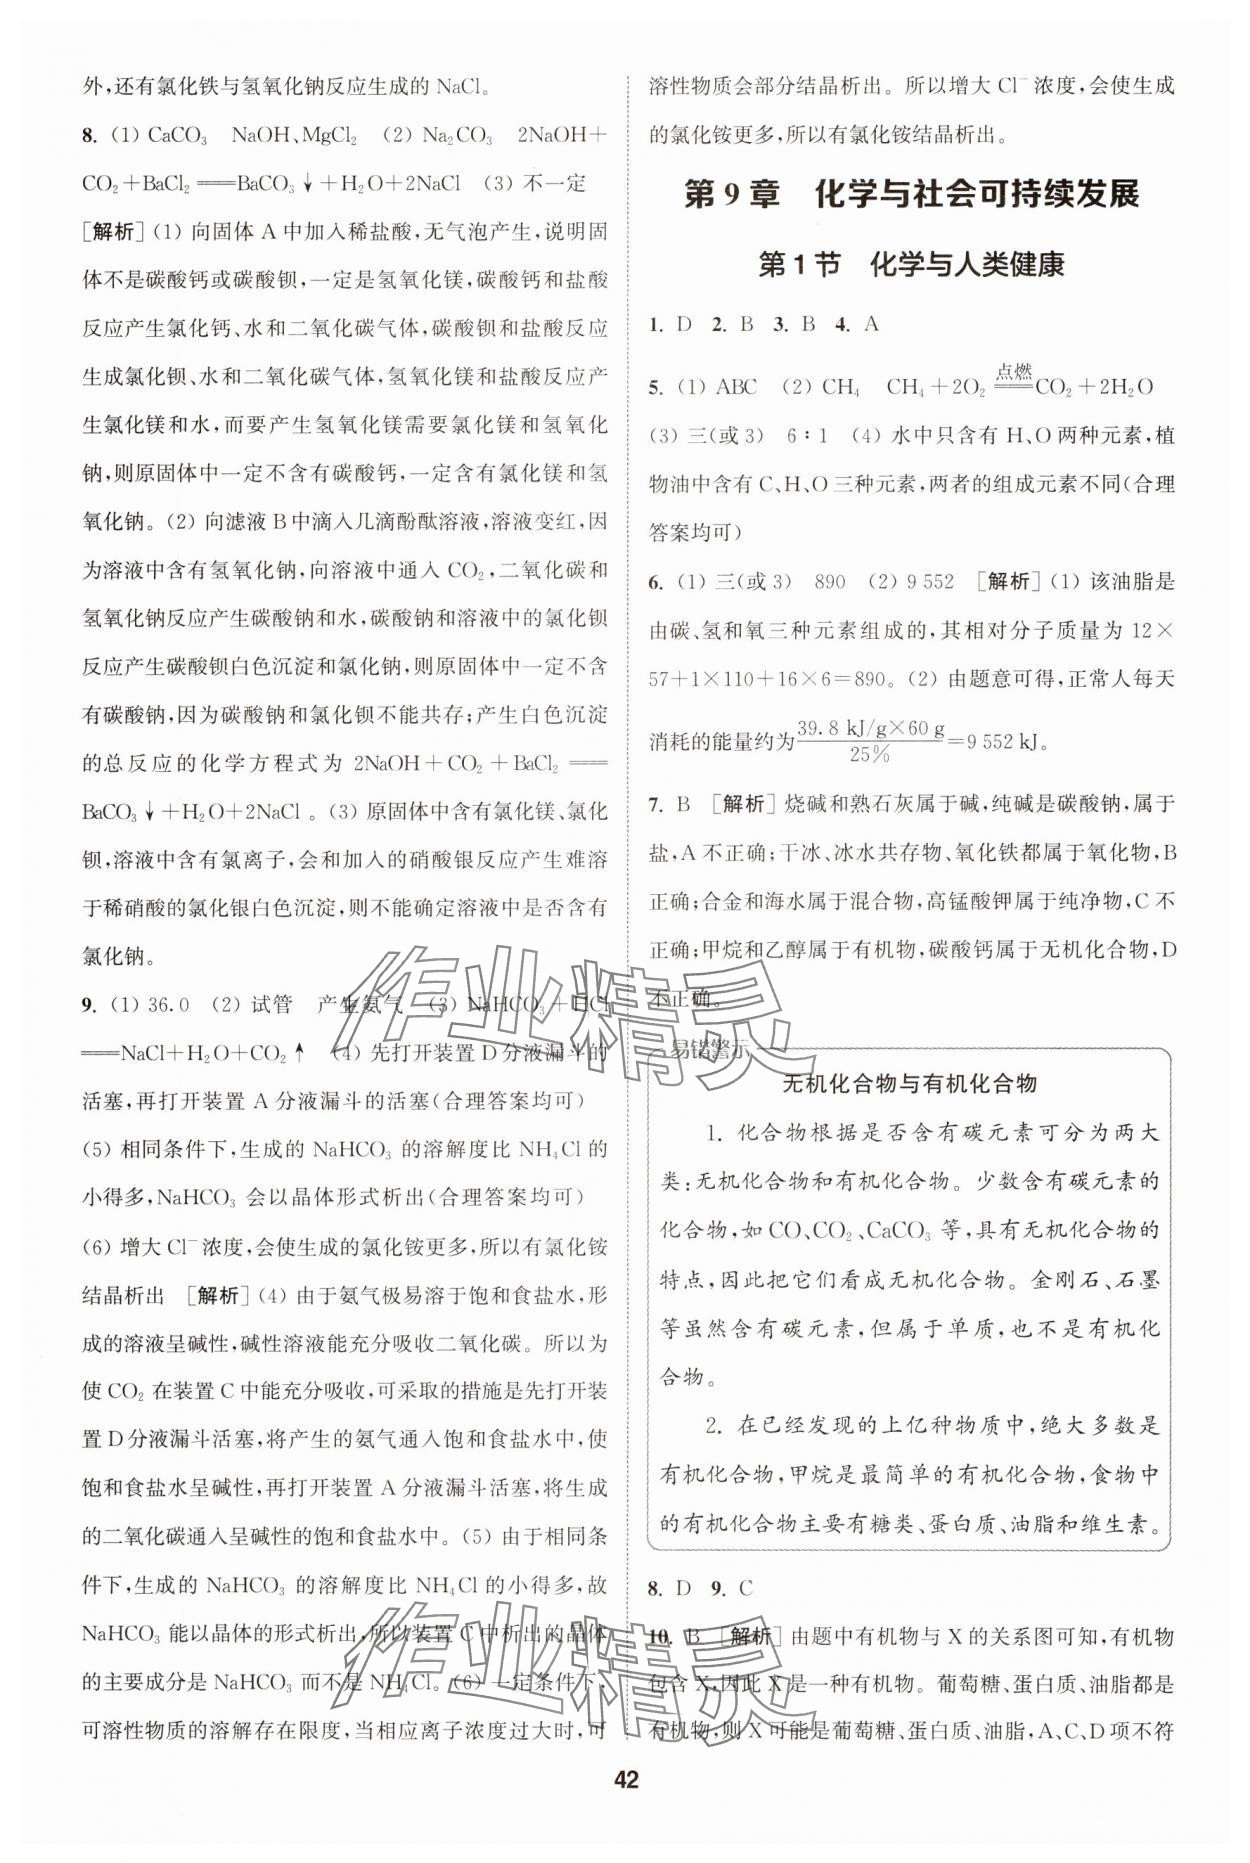 外,还有氯化铁与氢氧化钠反应生成的 NaCl。
8. (1) CaCO₃　NaOH、MgCl₂　(2) Na₂CO₃　2NaOH+
CO₂+BaCl₂══BaCO₃↓+H₂O+2NaCl　(3) 不一定
[解析](1) 向固体 A 中加入稀盐酸,无气泡产生,说明固
体不是碳酸钙或碳酸钡,一定是氢氧化镁,碳酸钙和盐酸
反应产生氯化钙、水和二氧化碳气体,碳酸钡和盐酸反应
生成氯化钡、水和二氧化碳气体,氢氧化镁和盐酸反应产
生氯化镁和水,而要产生氢氧化镁需要氯化镁和氢氧化
钠,则原固体中一定不含有碳酸钙,一定含有氯化镁和氢
氧化钠。(2) 向滤液 B 中滴入几滴酚酞溶液,溶液变红,因
为溶液中含有氢氧化钠,向溶液中通入 CO₂,二氧化碳和
氢氧化钠反应产生碳酸钠和水,碳酸钠和溶液中的氯化钡
反应产生碳酸钡白色沉淀和氯化钠,则原固体中一定不含
有碳酸钠,因为碳酸钠和氯化钡不能共存;产生白色沉淀
的总反应的化学方程式为 2NaOH+CO₂+BaCl₂══
BaCO₃↓+H₂O+2NaCl。(3) 原固体中含有氯化镁、氯化
钡,溶液中含有氯离子,会和加入的硝酸银反应产生难溶
于稀硝酸的氯化银白色沉淀,则不能确定溶液中是否含有
氯化钠。
9. (1) 36.0　(2) 试管　产生氨气　(3) NaHCO₃+HCl
══NaCl+H₂O+CO₂↑　(4) 先打开装置 D 分液漏斗的
活塞,再打开装置 A 分液漏斗的活塞(合理答案均可)
(5) 相同条件下,生成的 NaHCO₃ 的溶解度比 NH₄Cl 的
小得多,NaHCO₃ 会以晶体形式析出(合理答案均可)
(6) 增大 Cl⁻浓度,会使生成的氯化铵更多,所以有氯化铵
结晶析出　[解析](4) 由于氨气极易溶于饱和食盐水,形
成的溶液呈碱性,碱性溶液能充分吸收二氧化碳。所以为
使 CO₂ 在装置 C 中能充分吸收,可采取的措施是先打开装
置 D 分液漏斗活塞,将产生的氨气通入饱和食盐水中,使
饱和食盐水呈碱性,再打开装置 A 分液漏斗活塞,将生成
的二氧化碳通入呈碱性的饱和食盐水中。(5) 由于相同条
件下,生成的 NaHCO₃ 的溶解度比 NH₄Cl 的小得多,故
NaHCO₃ 能以晶体的形式析出,所以装置 C 中析出的晶体
的主要成分是 NaHCO₃ 而不是 NH₄Cl。(6) 一定条件下,
可溶性物质的溶解存在限度,当相应离子浓度过大时,可
溶性物质会部分结晶析出。所以增大 Cl⁻浓度,会使生成
的氯化铵更多,所以有氯化铵结晶析出。
第 9 章　化学与社会可持续发展
第 1 节　化学与人类健康
1. D　2. B　3. B　4. A
5. (1) ABC　(2) CH₄　CH₄+2O₂ 点燃══ CO₂+2H₂O
(3) 三(或 3)　6∶1　(4) 水中只含有 H、O 两种元素,植
物油中含有 C、H、O 三种元素,两者的组成元素不同(合理
答案均可)
6. (1) 三(或 3)　890　(2) 9 552　[解析](1) 该油脂是
由碳、氢和氧三种元素组成的,其相对分子质量为 12×
57+1×110+16×6=890。(2) 由题意可得,正常人每天
消耗的能量约为 39.8 kJ/g×60 g / 25% =9 552 kJ。
7. B　[解析] 烧碱和熟石灰属于碱,纯碱是碳酸钠,属于
盐,A 不正确;干冰、冰水共存物、氧化铁都属于氧化物,B
正确;合金和海水属于混合物,高锰酸钾属于纯净物,C 不
正确;甲烷和乙醇属于有机物,碳酸钙属于无机化合物,D
不正确。
易错警示
无机化合物与有机化合物
1. 化合物根据是否含有碳元素可分为两大
类:无机化合物和有机化合物。少数含有碳元素的
化合物,如 CO、CO₂、CaCO₃ 等,具有无机化合物的
特点,因此把它们看成无机化合物。金刚石、石墨
等虽然含有碳元素,但属于单质,也不是有机化
合物。
2. 在已经发现的上亿种物质中,绝大多数是
有机化合物,甲烷是最简单的有机化合物,食物中
的有机化合物主要有糖类、蛋白质、油脂和维生素。
8. D　9. C
10. B　[解析] 由题中有机物与 X 的关系图可知,有机物
包含 X,因此 X 是一种有机物。葡萄糖、蛋白质、油脂都是
有机物,则 X 可能是葡萄糖、蛋白质、油脂,A、C、D 项不符
42
作业精灵
作业精灵